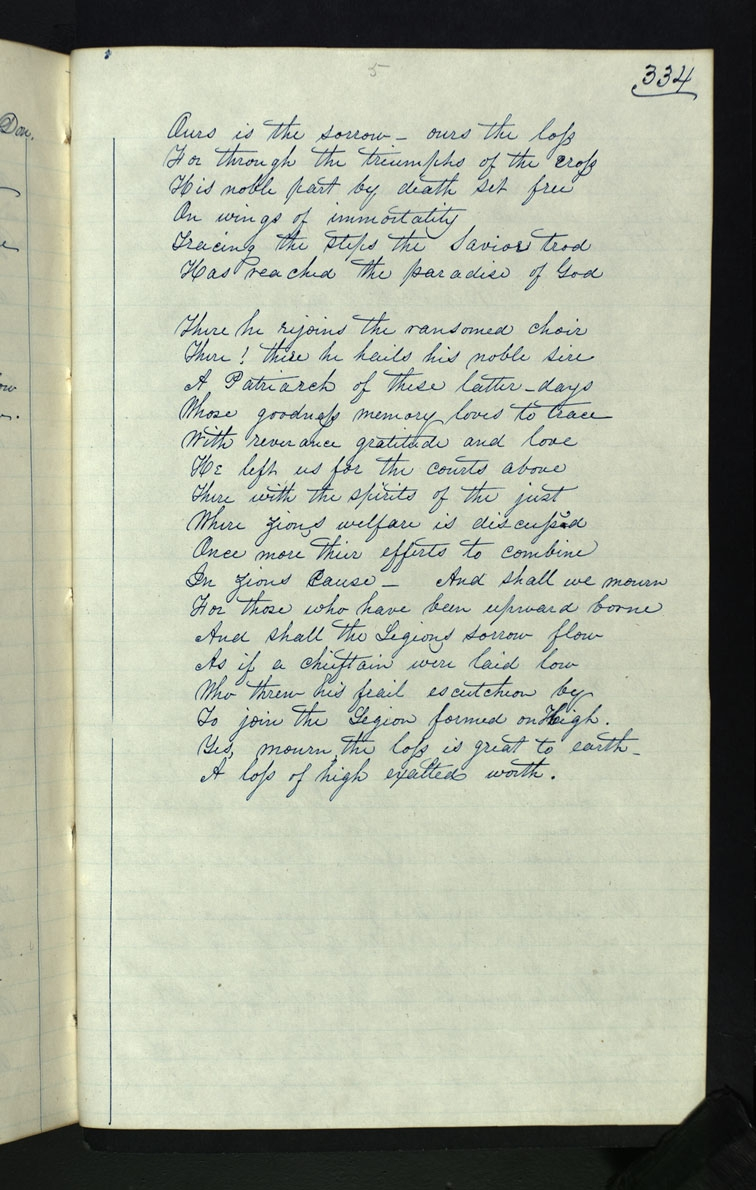 5
334
Don.
Ours is the sorrow – ours the loss
For through the triumphs of the cross
His noble part by death set free
On wings of immortality
Tracing the steps the Savior trod
Has reached the paradise of God
There he rijoins the ransomed choir
There! there he hails his noble sire
A Patriarch of these latter-days
Whose goodness memory loves to trace
With reverance gratitude and love
He left us for the courts above
There with the spirits of the just
Where Zions welfare is discussed
Once more thier efferts to combine
In Zions Cause – And shall we mourn
For those who have been upward borne
And shall the Legions sorrow flow
As if a chieftain were laid low
Who threw his frail escutcheon by
To join the Legion formed on High.
Yes, mourn, the loss is great to earth –
A loss of high exalted worth.